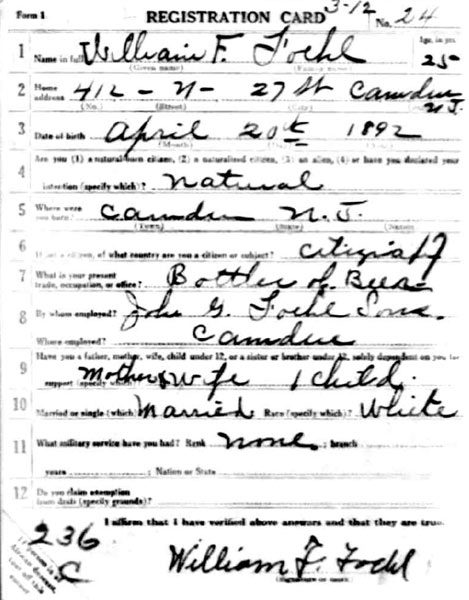 Form 1 REGISTRATION CARD 3-12 No. 24
1 Name in full William F. Foehl Age, in yrs. 25
(Given name) (Family name)
2 Home address 412 - N - 27 St Camden N.J.
(No.) (Street) (City) (State)
3 Date of birth April 20th 1892
(Month) (Day) (Year)
4 Are you (1) a natural-born citizen, (2) a naturalized citizen, (3) an alien, (4) or have you declared your
intention (specify which)? Natural
5 Where were you born? Camden N.J.
(Town) (State) (Nation)
6 If not a citizen, of what country are you a citizen or subject?
7 What is your present trade, occupation, or office? Bottler of Beer
8 By whom employed? John G. Foehl Sons.
Where employed? Camden
9 Have you a father, mother, wife, child under 12, or a sister or brother under 12, solely dependent on you for
support (specify which)? Mother & Wife 1 Child.
10 Married or single (which)? Married Race (specify which)? White
11 What military service have you had? Rank none ; branch
years ; Nation or State
12 Do you claim exemption from draft (specify grounds)?
I affirm that I have verified above answers and that they are true.
236
C
William F. Foehl
(Signature or mark)
If person is of African descent, tear off this corner